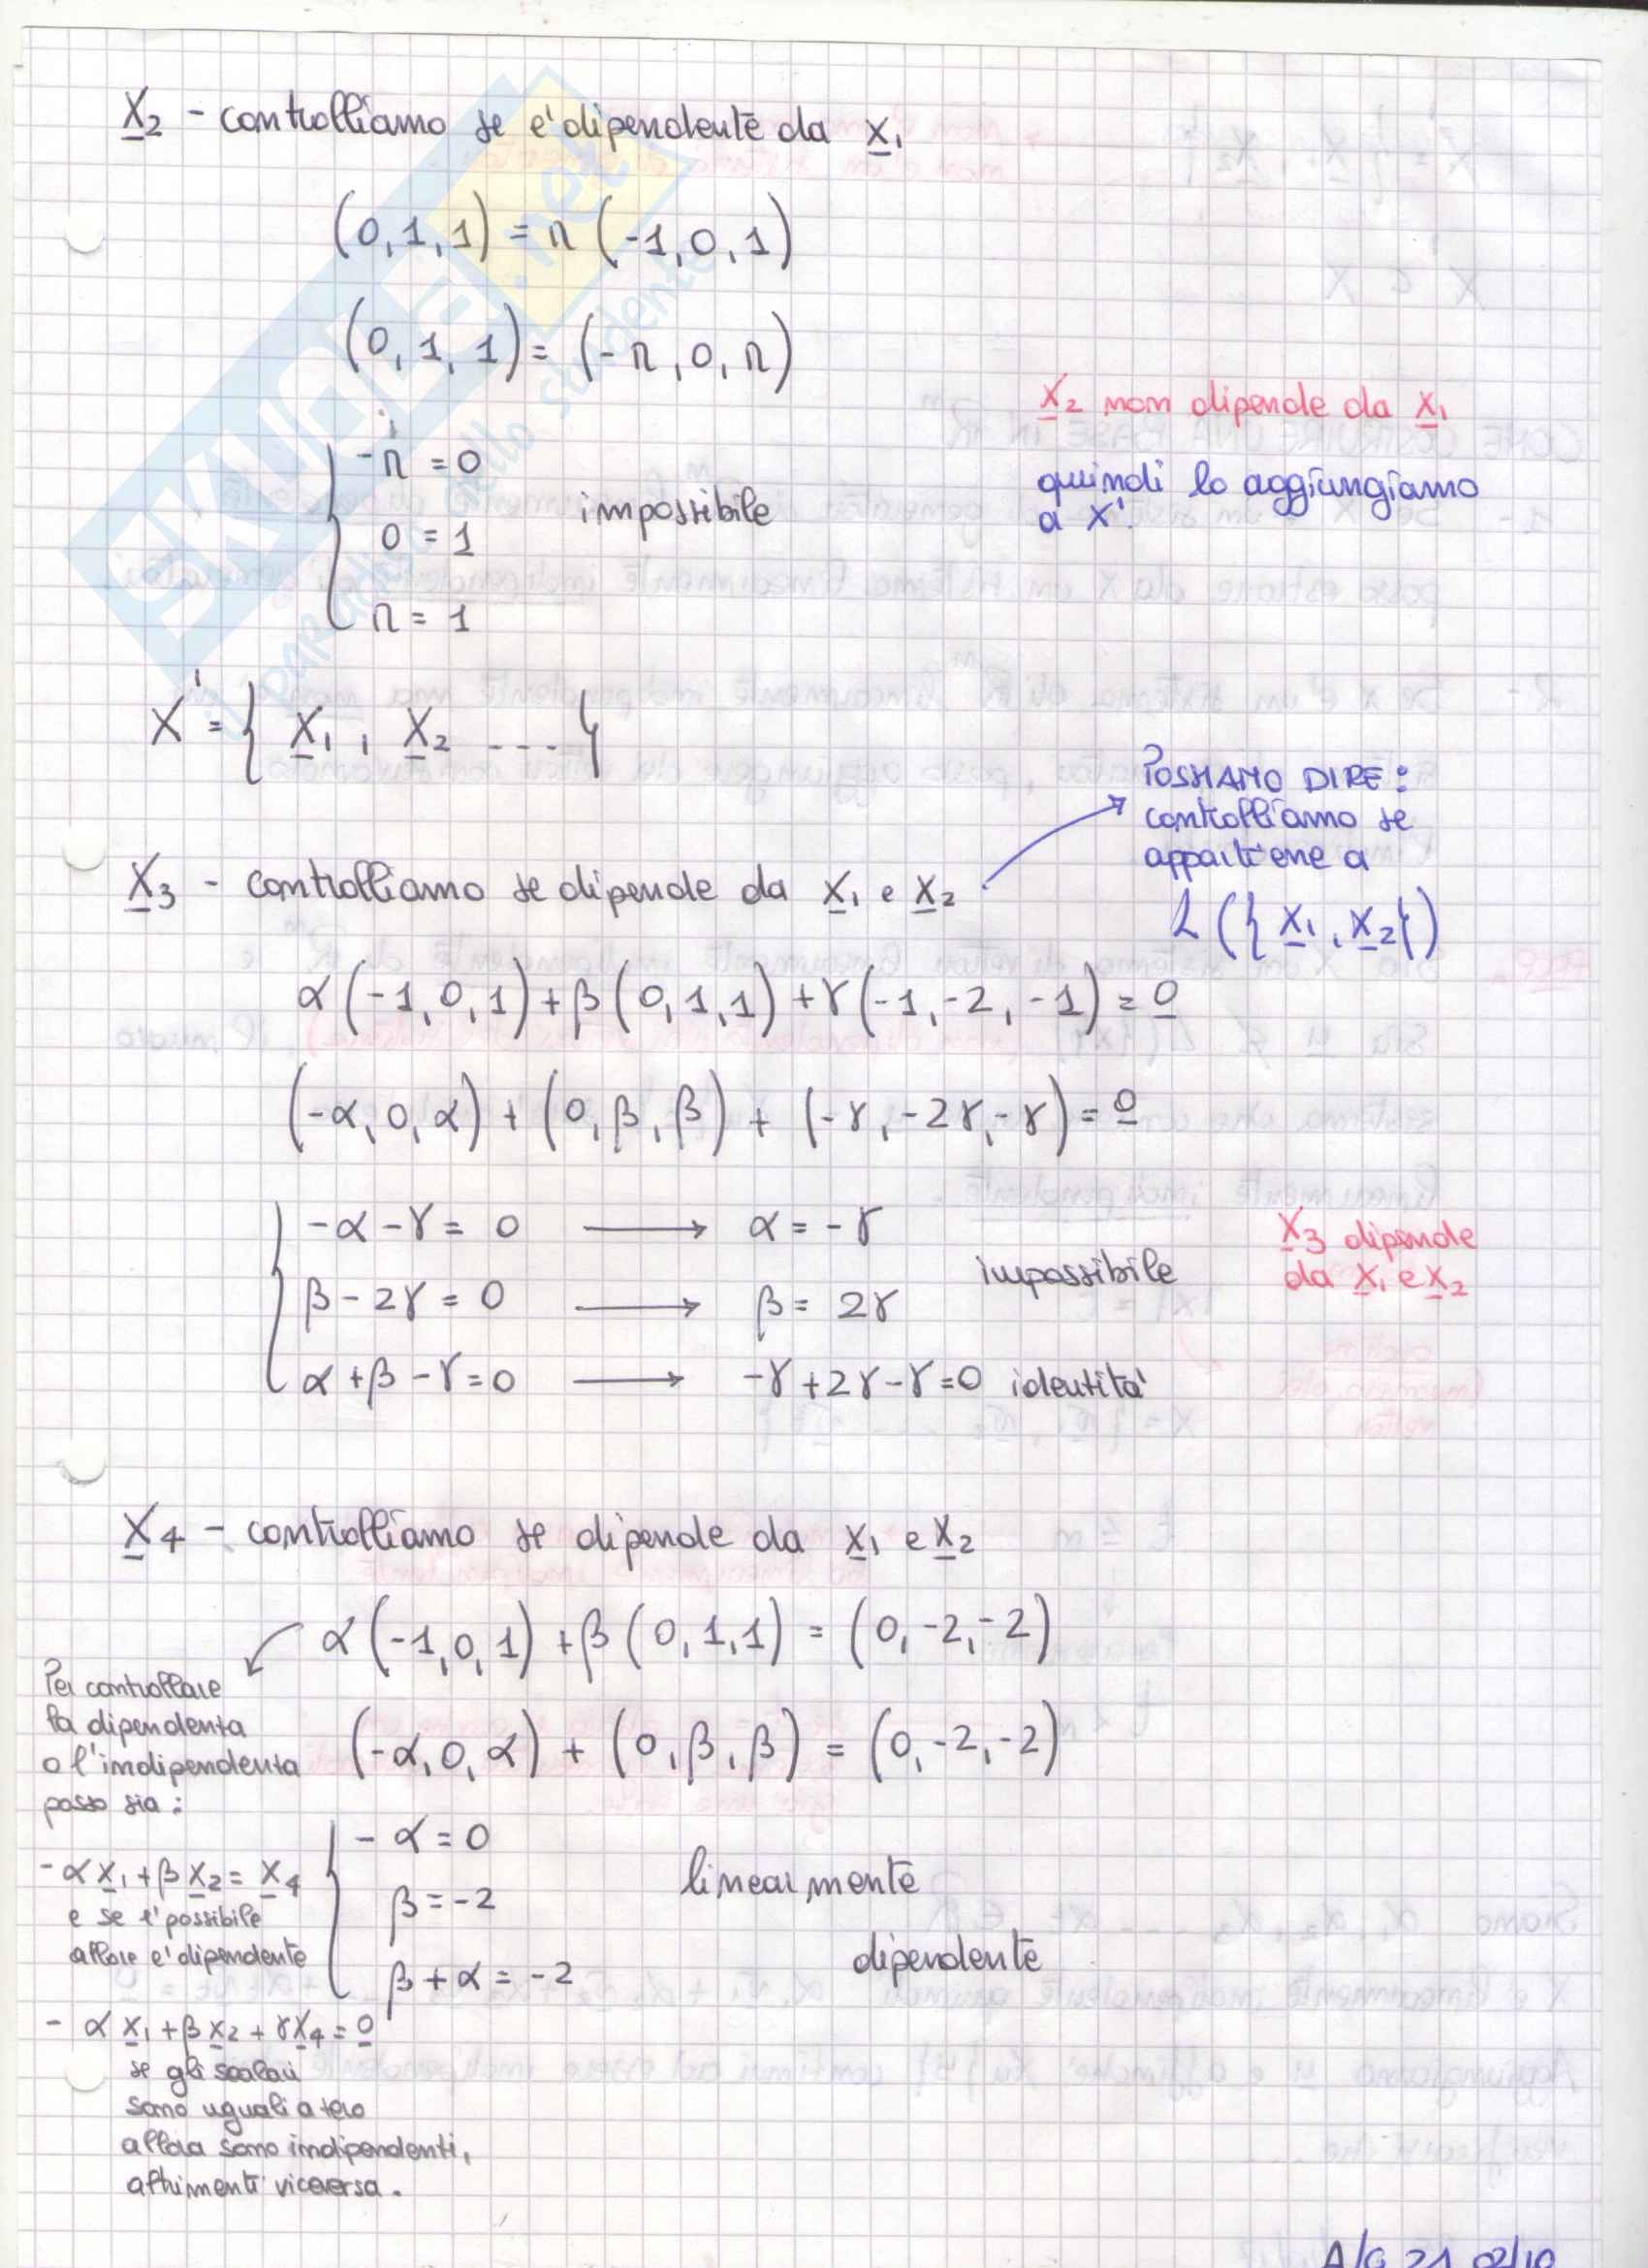 X2 - controlliamo se e' dipendente da X1
(0, 1, 1) = r (-1, 0, 1)
(0, 1, 1) = (-r, 0, r)
-r = 0
0 = 1
r = 1
impossibile
X2 non dipende da X1
quindi lo aggiungiamo
a X'.
X' = { X1, X2 ---- }
X3 - controlliamo se dipende da X1 e X2
POSSIAMO DIRE:
controlliamo se
appartiene a
L ({ X1, X2 })
α (-1, 0, 1) + β (0, 1, 1) + γ (-1, -2, -1) = 0
(-α, 0, α) + (0, β, β) + (-γ, -2γ, -γ) = 0
-α - γ = 0 → α = -γ
β - 2γ = 0 → β = 2γ
α + β - γ = 0 → -γ + 2γ - γ = 0 identità
impossibile
X3 dipende
da X1 e X2
X4 - controlliamo se dipende da X1 e X2
α (-1, 0, 1) + β (0, 1, 1) = (0, -2, -2)
(-α, 0, α) + (0, β, β) = (0, -2, -2)
- α = 0
β = -2
β + α = -2
linearmente
dipendente
Per controllare
la dipendenza
o l'indipendenza
posso sia:
- α X1 + β X2 = X4
e se e' possibile
allora e' dipendente
- α X1 + β X2 + γ X4 = 0
se gli scalari
sono uguali a zero
allora sono indipendenti,
altrimenti viceversa.
SKUOLA.net
il paradiso dello studente